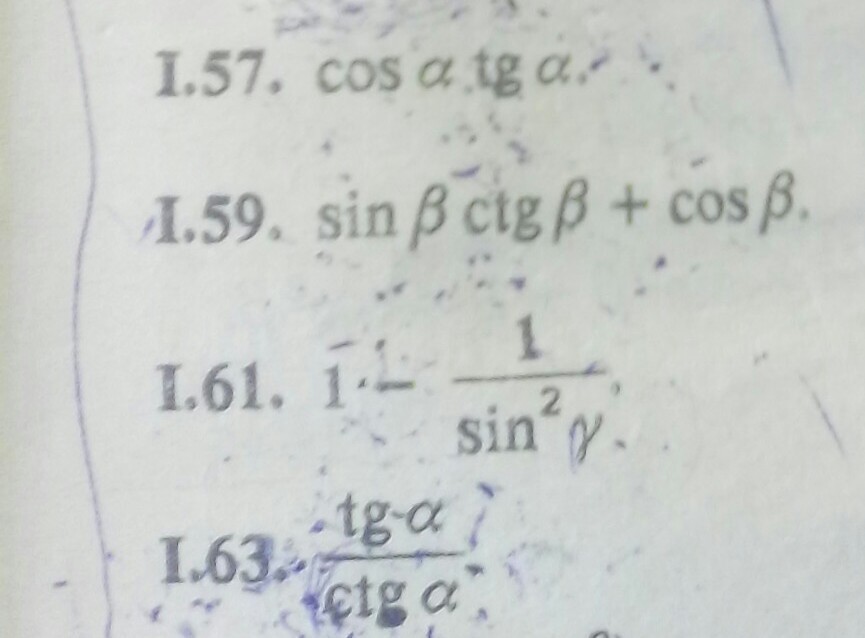 I.57. cos α tg α.
I.59. sin β ctg β + cos β.
I.61. 1 − 1/sin² γ.
I.63. tg α/ctg α.